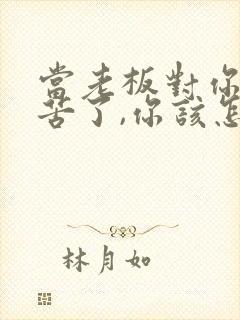 當老板對你
苦了,你該怎
林月如